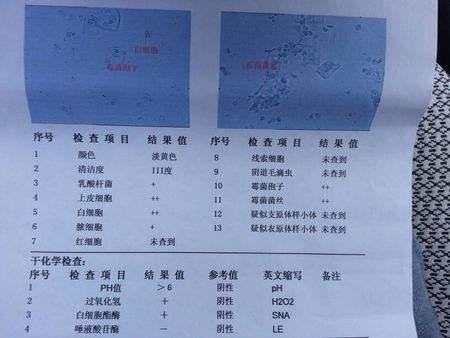 白细胞
霉菌孢子
霉菌菌丝
序号 检查项目 结果值 序号 检查项目 结果值
1 颜色 淡黄色 8 线索细胞 未查到
2 清洁度 III度 9 阴道毛滴虫 未查到
3 乳酸杆菌 + 10 霉菌孢子 ++
4 上皮细胞 ++ 11 霉菌菌丝 ++
5 白细胞 ++ 12 疑似支原体样小体 未查到
6 脓细胞 + 13 疑似衣原体样小体 未查到
7 红细胞 未查到
干化学检查:
序号 检查项目 结果值 参考值 英文缩写 备注
1 PH值 >6 阴性 pH
2 过氧化氢 + 阴性 H2O2
3 白细胞酯酶 + 阴性 SNA
4 唾液酸苷酶 − 阴性 LE